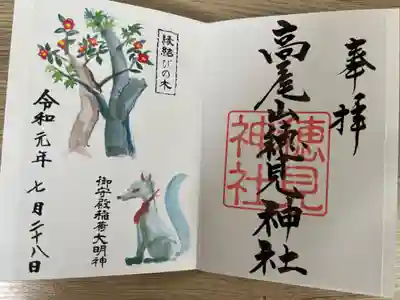 奉拝
高尾山穂見神社
穂見
神社
縁結びの木
令和元年 七月二十八日
御守殿稲荷大明神